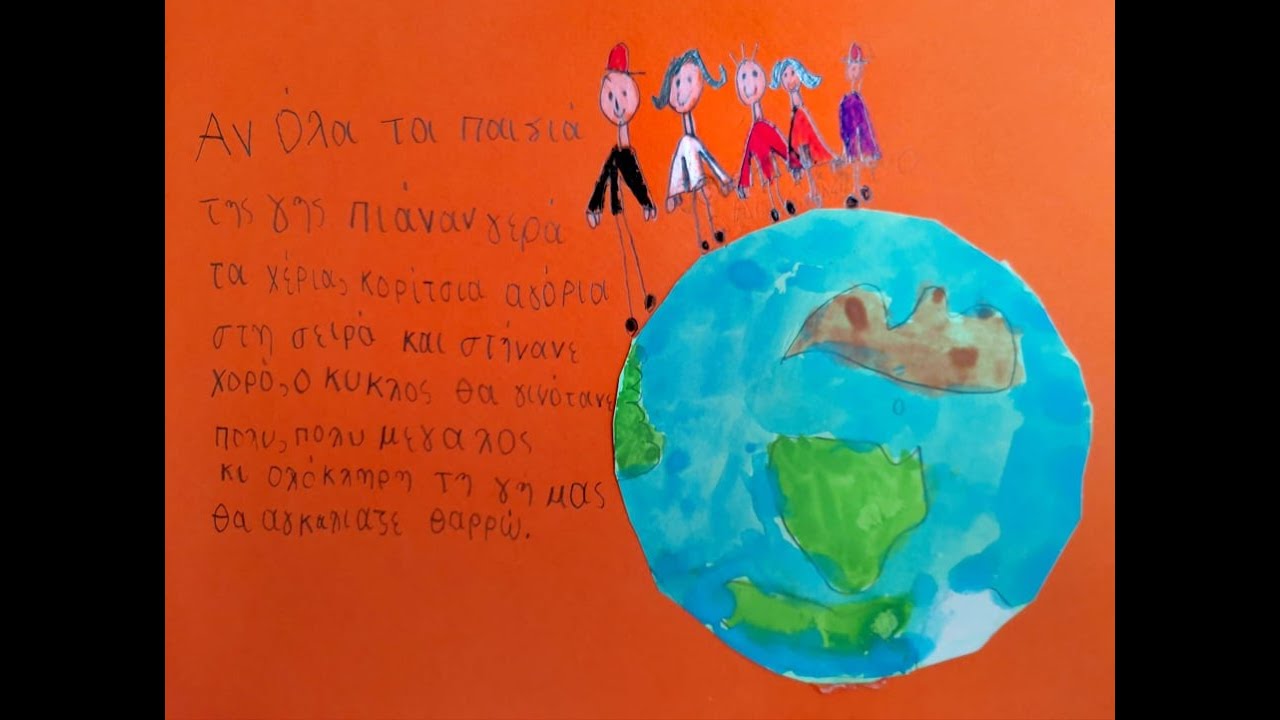 Αν όλα τα παιδιά
της γης πιάναν γερά
τα χέρια, κορίτσια αγόρια
στη σειρά και στήνανε
χορό, ο κυκλος θα γινότανε
πολυ, πολυ μεγαλος
κι ολόκληρη τη γη μας
θα αγκαλιαζε θαρρώ.